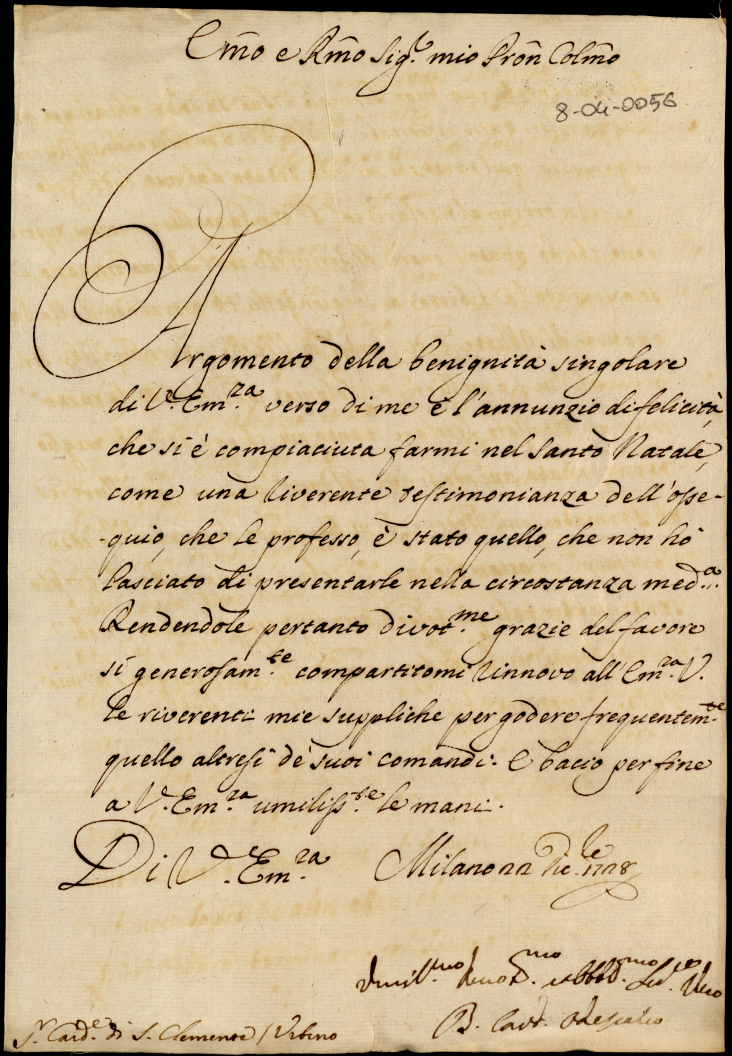 Emo e Rmo Sigr. mio Pron Colmo
8-04-0056
Argomento della benignità singolare
di V. Em.za verso di me è l'annunzio di felicità,
che si è compiaciuta farmi nel Santo Natale,
come una riverente testimonianza dell'osse-
-quio, che le professo, è stato quello, che non hò
lasciato di presentarle nella circostanza med.a
Rendendole pertanto divot.me grazie del favore
sì generosam.te compartitomi rinnovo all'Em.za V.
le riverenti mie suppliche per godere frequentem.te
quello altresì de' suoi comandi: E bacio per fine
a V. Em.za umiliss.te le mani.
Di V. Em.za Milano 22 Dic.le 1728
Umil.mo Devo
B. Card. Odescalco
Sr. Card.e di S. Clemente / Urbino